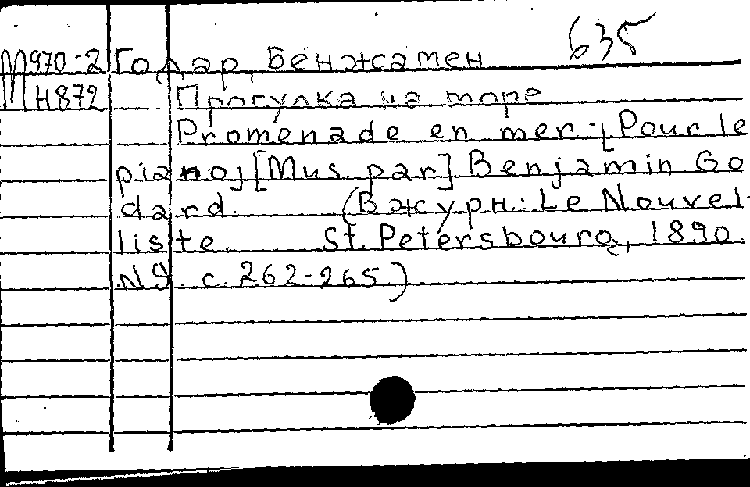 635
М970-2 Годар, Бенжамен
Н872 Прогулка на море
Promenade en mer; [Pour le
piano] [Mus. par] Benjamin Go
dard. (В журн.: Le Nouvel-
liste. St. Petersbourg, 1890.
N9. с. 262-265)